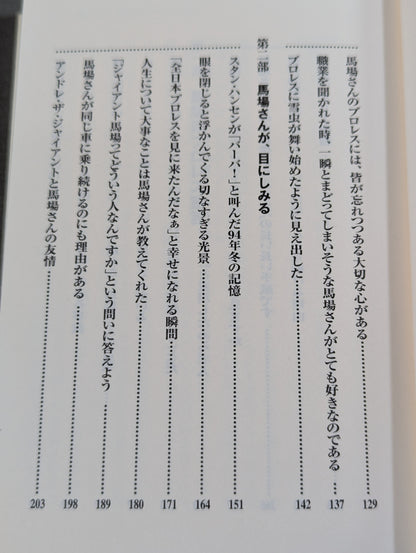 馬場さんのプロレスには、皆が忘れつつある大切な心がある……………129
職業を聞かれた時、一瞬とまどってしまいそうな馬場さんがとても好きなのである……137
プロレスに雪虫が舞い始めたように見え出した……………142
第二部 馬場さんが、目にしみる
スタン・ハンセンが「バーバ！」と叫んだ94年冬の記憶……………151
眼を閉じると浮かんでくる切なすぎる光景……………164
「全日本プロレスを見に来たんだなぁ」と幸せになれる瞬間……………171
人生について大事なことは馬場さんが教えてくれた……………180
「ジャイアント馬場ってどういう人なんですか」という問いに答えよう……………189
馬場さんが同じ車に乗り続けるのにも理由がある……………198
アンドレ・ザ・ジャイアントと馬場さんの友情……………203